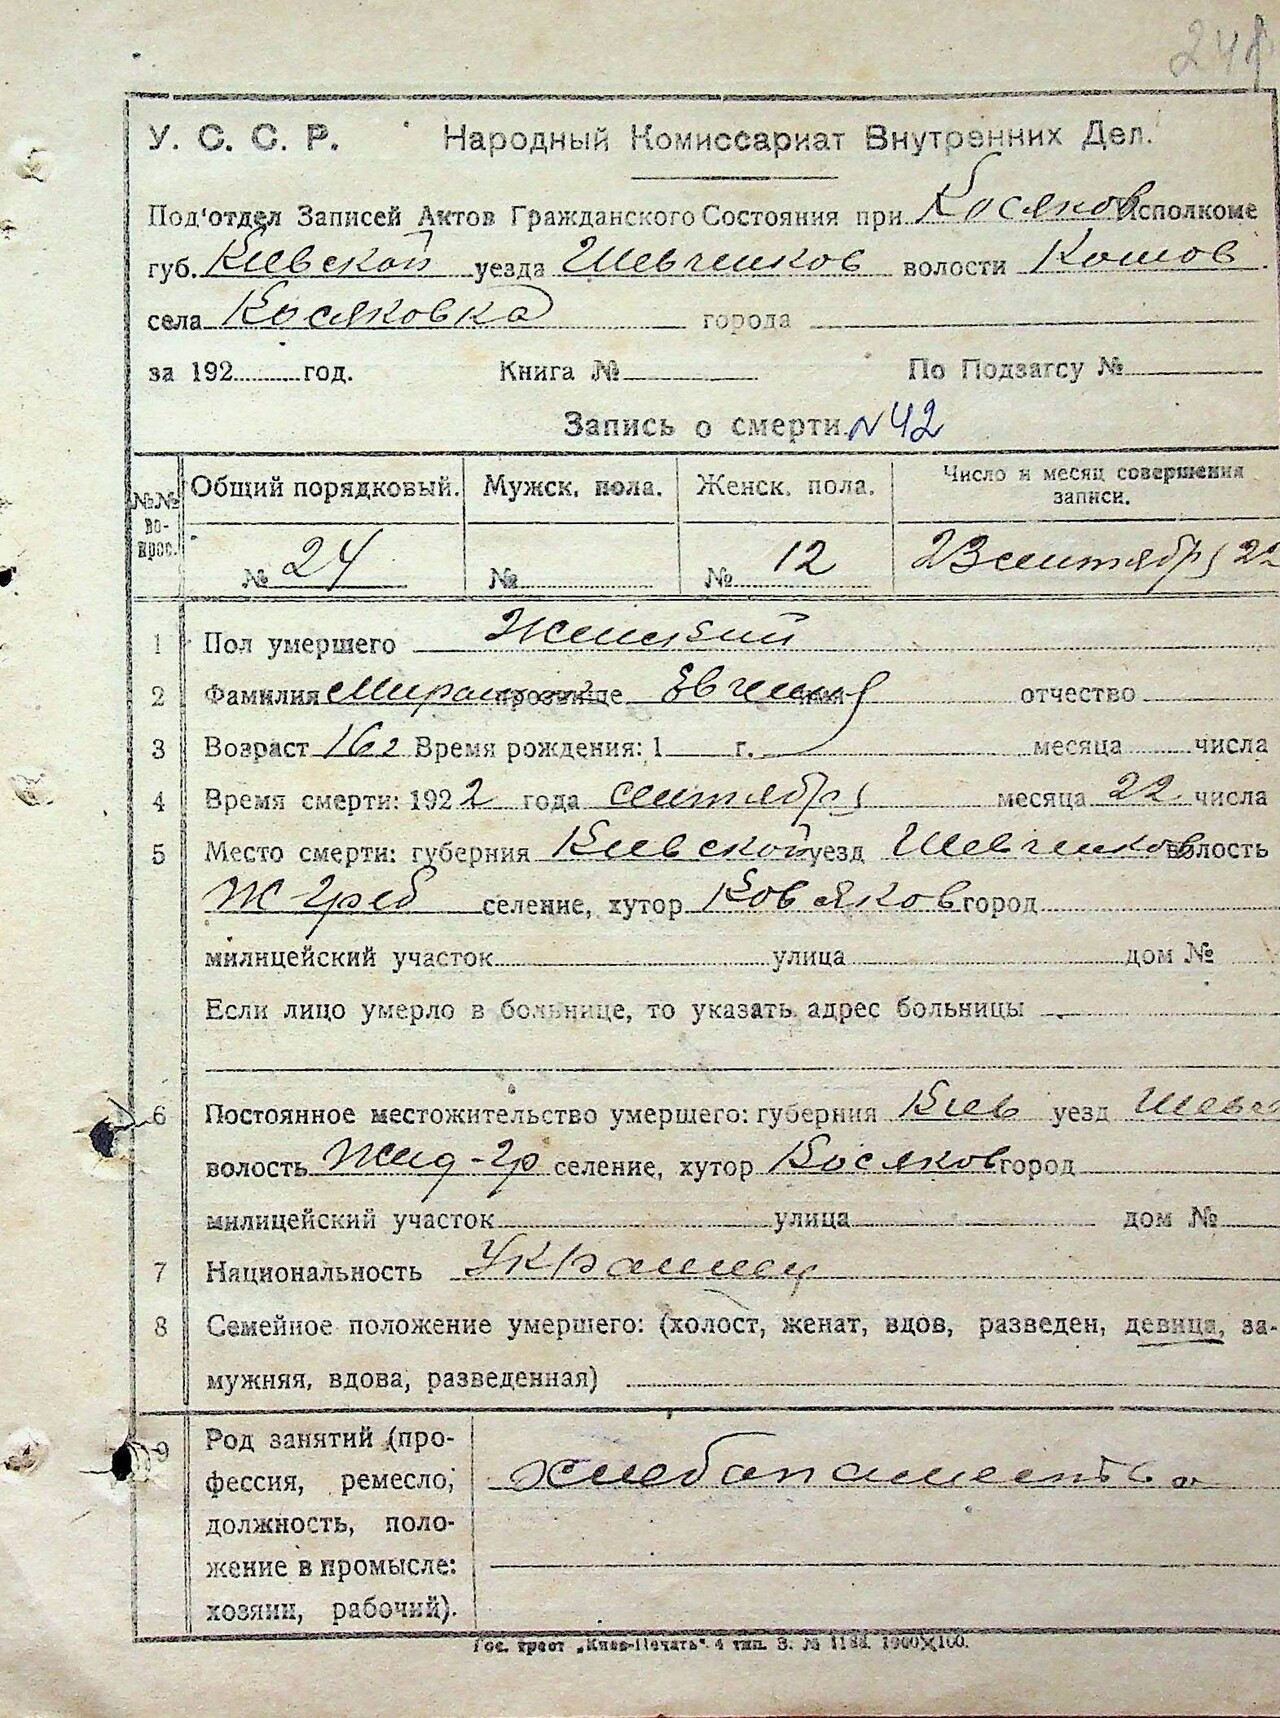 У. С. С. Р. Народный Комиссариат Внутренних Дел.
Под'отдел Записей Актов Гражданского Состояния при Косяков Исполкоме
губ. Киевской уезда Шевченков волости Кошов
села Косяковка города
за 192 год. Книга № По Подзагсу №
Запись о смерти. N 42
№№ вопрос. Общий порядковый. Мужск. пола. Женск. пола. Число и месяц совершения записи.
№ 24 № № 12 23 сентября 22
1 Пол умершего Женский
2 Фамилия прозвище Евгения имя отчество
3 Возраст 16 г Время рождения: 1 г. месяца числа
4 Время смерти: 1922 года сентября месяца 22 числа
5 Место смерти: губерния Киевской уезд Шевченков волость
Ж-греб селение, хутор город
милицейский участок улица дом №
Если лицо умерло в больнице, то указать адрес больницы
6 Постоянное местожительство умершего: губерния Киев уезд Шевч
волость Жид-гр селение, хутор Косяков город
милицейский участок улица дом №
7 Национальность Украинец
8 Семейное положение умершего: (холост, женат, вдов, разведен, девица, за-
мужняя, вдова, разведенная)
9 Род занятий (про-
фессия, ремесло,
должность, поло-
жение в промысле:
хозяин, рабочий).
хлебапашество
Гос. трест „Киев-Печать". 4 тип. З. №